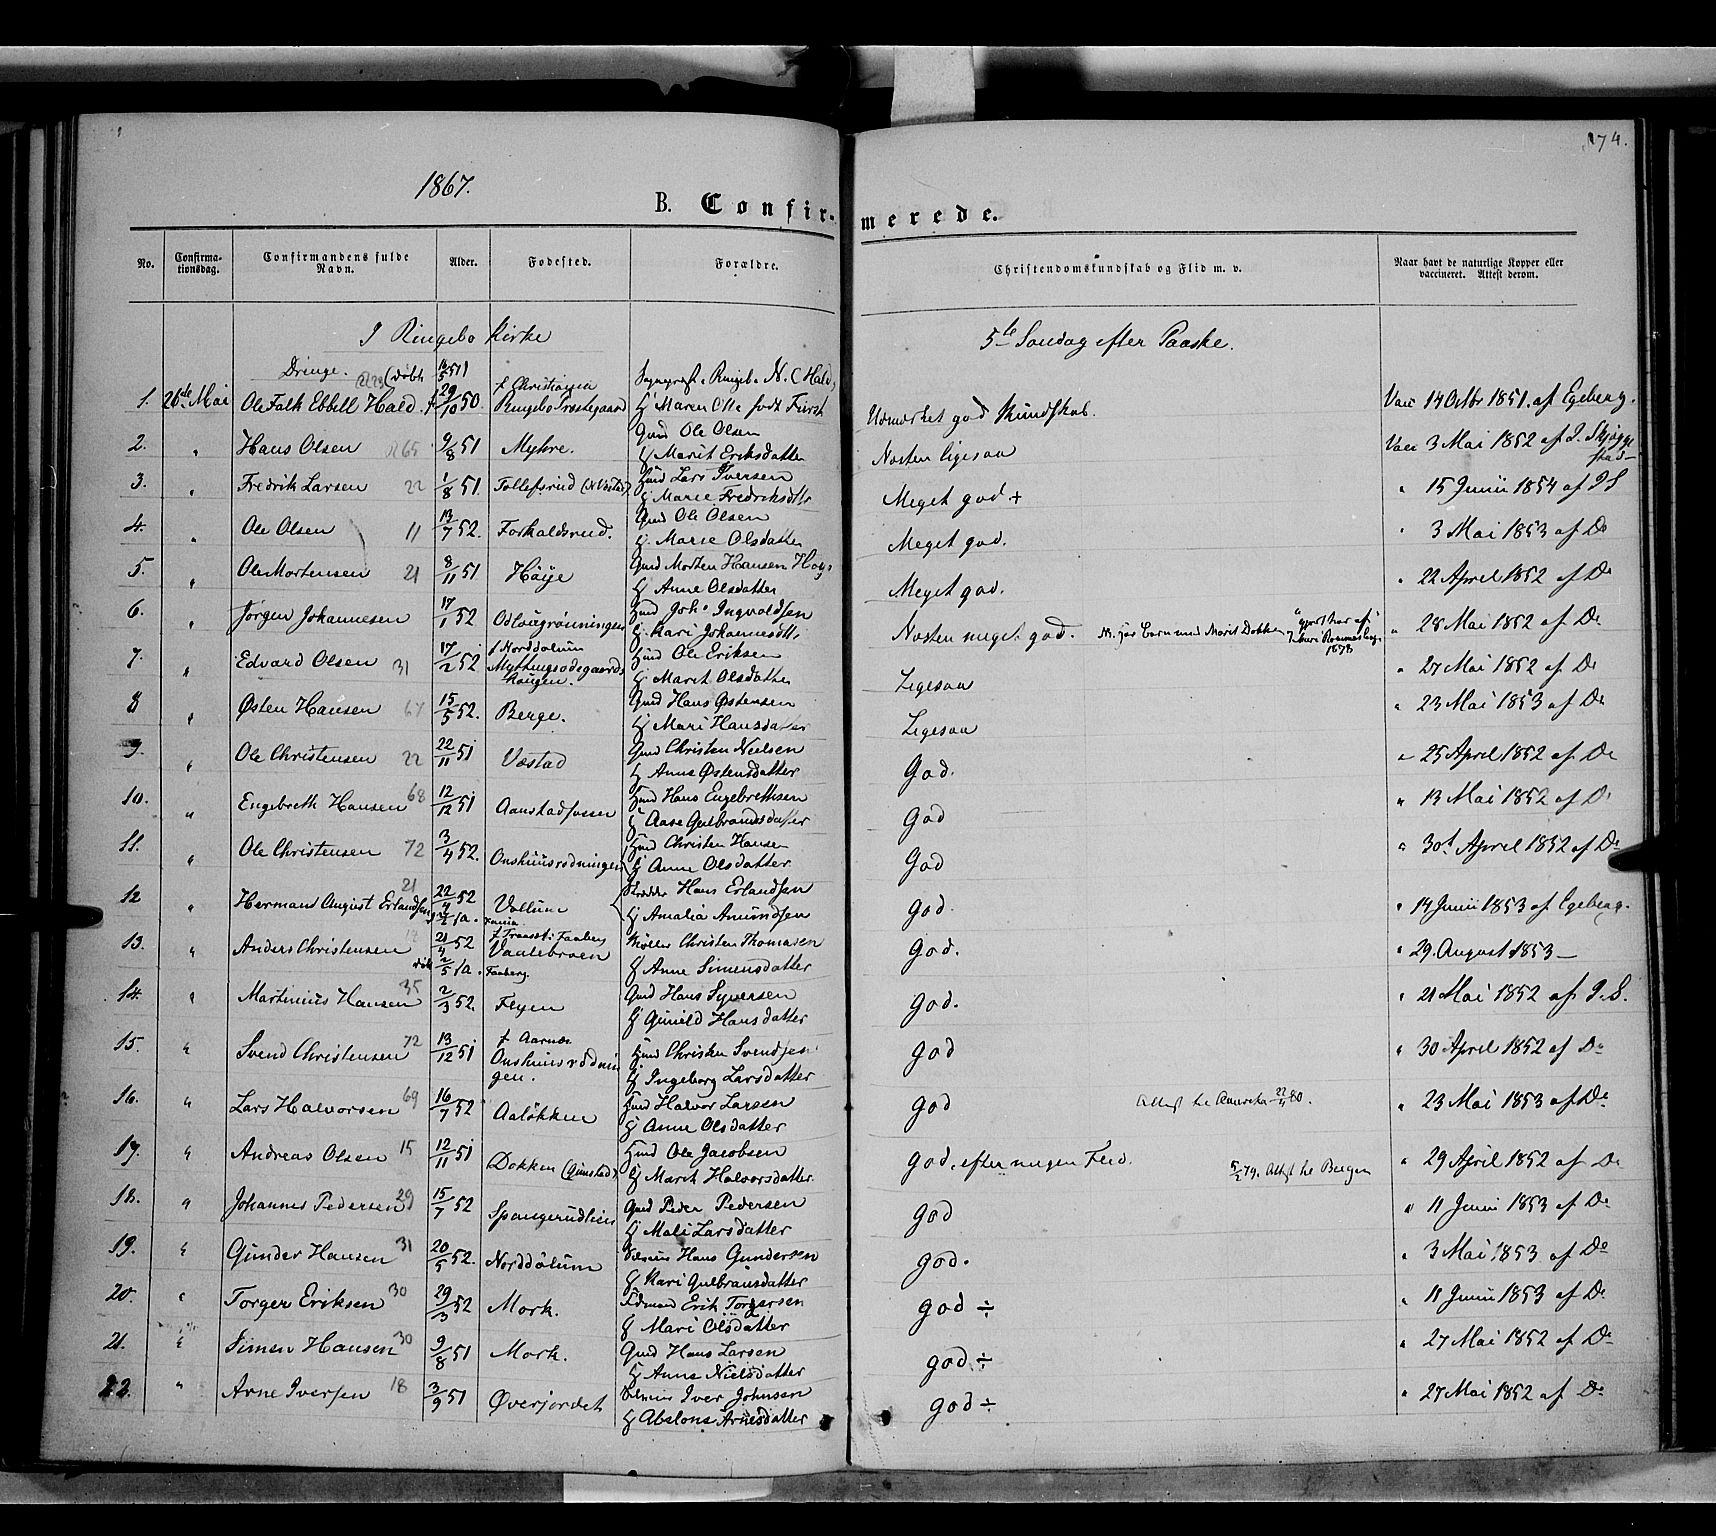 174.
1867.
B. Confirmerede.
No. Confirmationsdag. Confirmandens fulde Navn. Alder. Fodested. Forældre. Christendomskundskab og Flid m. v. Naar havt de naturlige Kopper eller vaccineret. Attest derom.
I Ringebo Kirke 5te Søndag efter Paaske.
Drenge. (døbt 16/5 51)
1. 26de Mai Ole Falk Ebbell Hald. f 29/10 50. f Christiania Ringebo Præstegaard Sognepræst i Ringebo N. Hald Hu Maren Olle født Fürst Udmærket god Kundskab. Vacc 14 Octbr 1851. af Egeberg.
2. " Hans Olsen 65 9/8 51 Myhre. Gmd Ole Olsen H Marit Eriksdatter Næsten ligesaa Vacc 3 Mai 1852 af P. Skjøggestad
3. " Fredrik Larsen 22 1/8 51. Tollefsrud (N Væstad) Hmd Lars Iversen H Marie Fredriksdtr Meget god + " 15 Junii 1854 af P S
4. " Ole Olsen 11 13/7 52. Forkaldsrud. Gmd Ole Olsen H. Marie Olsdatter Meget god. " 3 Mai 1853 af Do
5. " Ole Mortensen 21 8/11 51 Høye Gmd Morten Hansen Høye H Anne Olsdatter Meget god. " 22 April 1852 af Do
6. " Jørgen Johannesen 17/1 52 Odlougrønningen Hmd Johs Ingvoldsen H. Kari Johannesdtr Næsten meget god. " 28 Mai 1852 af Do
7. " Edvard Olsen 31 17/2 52 f Norddølum Myttingsødegaardskougen. Hmd Ole Eriksen H Marit Olsdatter Ligesaa " 27 Mai 1852 af Do
8 " Østen Hansen 67 15/5 52. Berge. Gmd Hans Østensen H Mari Hansdatter Ligesaa " 23 Mai 1853 af Do
9. " Ole Christensen 22 22/11 51 Væstad Gmd Christen Nielsen H Anne Østensdatter God. " 25 April 1852 af Do
10. " Engebreth Hansen 68 12/12 51 Aanstadfossen Hmd Hans Engebrethsen H Aase Gulbrandsdatter God " 13 Mai 1852 af Do
11. " Ole Christensen 72 3/4 52. Onshuusrødningen Hmd Christen Hansen H Anne Olsdatter God " 30t April 1852 af Do
12 " Herman August Erlandsen 21 22/4 52 Vollum Skrædder Hans Erlandsen H Amalia Amundsen God. " 14 Junii 1853 af Egeberg.
13. " Anders Christensen 17 21/4 52 døbt 2/5 s. a. Vaalebroen Faaberg. Møller Christen Thomasen H Anne Simensdatter God. " 29. August 1853 —
14. " Martinius Hansen 35 2/3 52. Flyen Gmd Hans Syversen H Gunild Hansdatter God. " 21 Mai 1852 af P. S.
15. " Svend Christensen 72 13/12 51 f Aarnæs Onshuusrødningen. Hmd Christen Svendsen H Ingeborg Larsdatter God " 30 April 1852 af Do
16. " Lars Halvorsen 69 16/7 52 Aaløkken Hmd Halvor Larsen H Anne Olsdatter God Attest til Amerika 22/4 80. " 23 Mai 1853 af Do
17. " Andreas Olsen 15 12/11 51 Dokken (Gunstad) Hmd Ole Jacobsen H Marit Halvorsdatter God. efter megen Flid. 5/2 79. Attest til Bergen " 29 April 1852 af Do
18. " Johannes Pedersen 29 15/7 52 Spangrudlien Gmd Peder Pedersen H Mali Larsdatter God " 11 Junii 1853 af Do
19. " Gunder Hansen 31 20/5 52. Norddølum Hans Gundersen H Kari Gulbransdatter God. " 3 Mai 1853 af Do
20. " Torger Eriksen 30 29/3 52 Mork. Erik Torgersen H Mari Olsdatter God ÷ " 11 Junii 1853 af Do
21. " Simen Hansen 30 9/8 51 Mork. Gmd Hans Larsen H Anne Nielsdatter God ÷ " 27 Mai 1852 af Do
22. " Arne Iversen 18 3/9 51 Øverjordet Iver Johnsen H Abelone Arnesdatter God ÷ " 27 Mai 1852 af Do